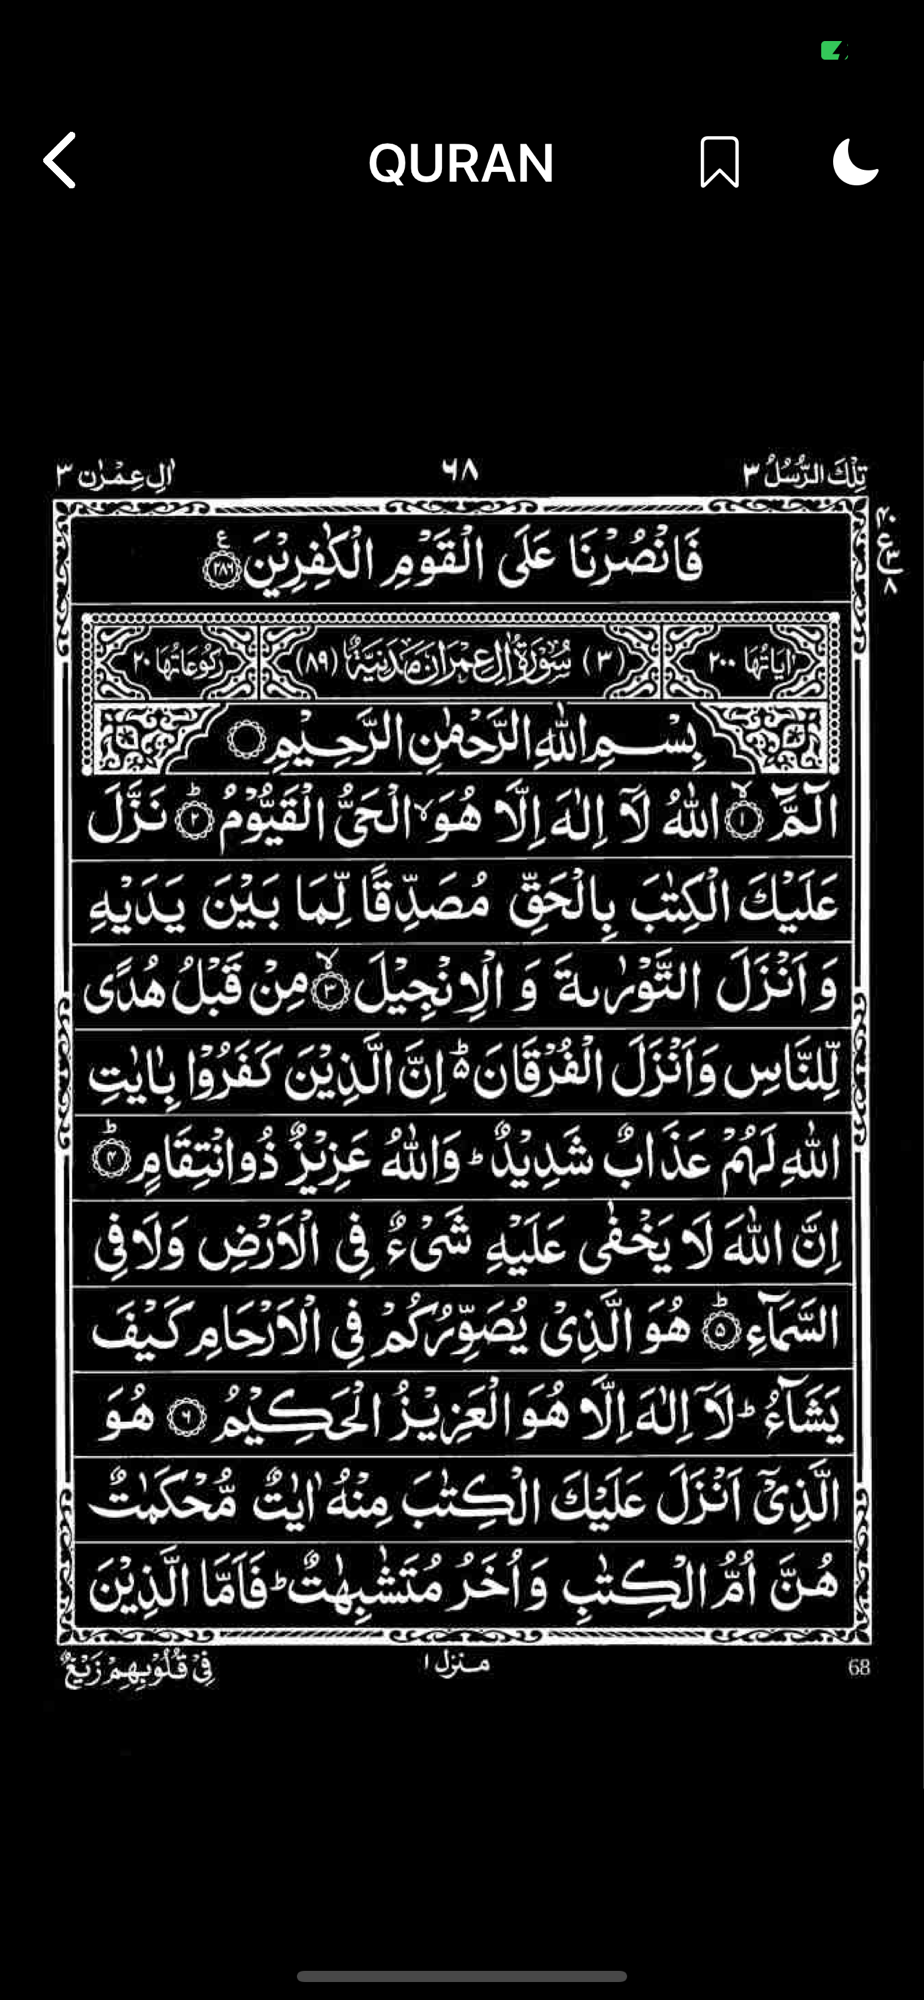 QURAN
تِلْكَ الرُّسُلُ ٣
٦٨
اٰلِ عِمْرٰن ٣
فَانْصُرْنَا عَلَى الْقَوْمِ الْكٰفِرِيْنَ ۧ ﴿٢٨٦﴾
ع ٤٠ ٣ ٨
اٰيَاتُهَا ٢٠٠
(٣) سُوْرَةُ اٰلِ عِمْرَانَ مَدَنِيَّةٌ (٨٩)
رُكُوْعَاتُهَا ٢٠
بِسْمِ اللّٰهِ الرَّحْمٰنِ الرَّحِيْمِ ۝
الٓمَّٓ ۙ ﴿١﴾ اللّٰهُ لَاۤ اِلٰهَ اِلَّا هُوَ ۙ الْحَىُّ الْقَيُّوْمُ ؕ ﴿٢﴾ نَزَّلَ
عَلَيْكَ الْكِتٰبَ بِالْحَقِّ مُصَدِّقًا لِّمَا بَيْنَ يَدَيْهِ
وَ اَنْزَلَ التَّوْرٰىةَ وَ الْاِنْجِيْلَ ۙ ﴿٣﴾ مِنْ قَبْلُ هُدًى
لِّلنَّاسِ وَاَنْزَلَ الْفُرْقَانَ ؕ۬ اِنَّ الَّذِيْنَ كَفَرُوْا بِاٰيٰتِ
اللّٰهِ لَهُمْ عَذَابٌ شَدِيْدٌ ؕ وَاللّٰهُ عَزِيْزٌ ذُوانْتِقَامٍ ؕ ﴿٤﴾
اِنَّ اللّٰهَ لَا يَخْفٰى عَلَيْهِ شَىْءٌ فِى الْاَرْضِ وَلَا فِى
السَّمَآءِ ؕ ﴿٥﴾ هُوَ الَّذِىْ يُصَوِّرُكُمْ فِى الْاَرْحَامِ كَيْفَ
يَشَآءُ ؕ لَاۤ اِلٰهَ اِلَّا هُوَ الْعَزِيْزُ الْحَكِيْمُ ﴿٦﴾ هُوَ
الَّذِىْۤ اَنْزَلَ عَلَيْكَ الْكِتٰبَ مِنْهُ اٰيٰتٌ مُّحْكَمٰتٌ
هُنَّ اُمُّ الْكِتٰبِ وَ اُخَرُ مُتَشٰبِهٰتٌ ؕ فَاَمَّا الَّذِيْنَ
فِىْ قُلُوْبِهِمْ زَيْغٌ
منزل ١
68